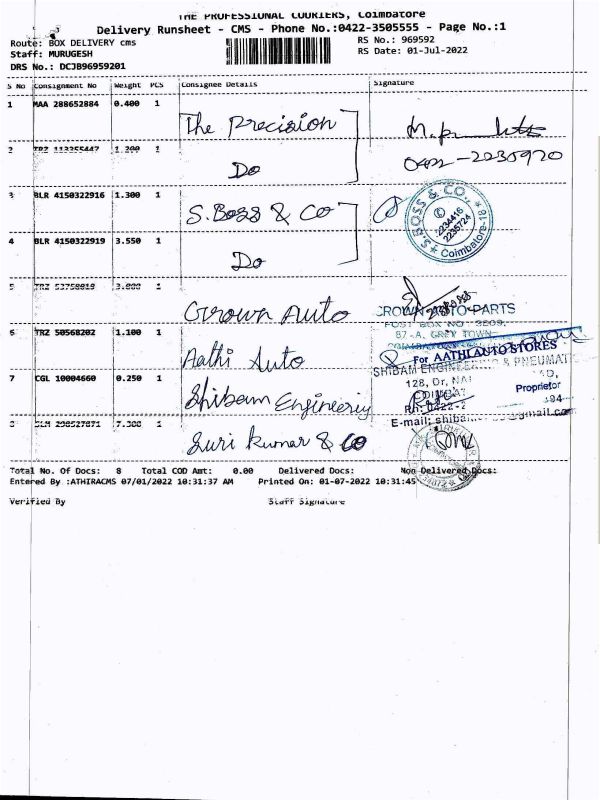 THE PROFESSIONAL COURIERS, Coimbatore
Delivery Runsheet - CMS - Phone No.:0422-3505555 - Page No.:1
Route: BOX DELIVERY cms
RS No.: 969592
Staff: MURUGESH
RS Date: 01-Jul-2022
DRS No.: DCJB96959201
S No Consignment No Weight PCS Consignee Details Signature
1 MAA 288652884 0.400 1 The Precision
2 TRZ 113255447 1.200 1 Do
0422-2235920
3 BLR 4150322916 1.300 1 S. Boss & Co
S. BOSS & CO., Coimbatore-18
2234416
2235724
4 BLR 4150322919 3.550 1 Do
5 TRZ 1 Crown Auto
CROWN AUTO PARTS
POST BOX NO 3209,
87-A, GREY TOWN
6 TRZ 50568202 1.100 1 Aathi Auto
For AATHI AUTO STORES
Proprietor
7 CGL 10004660 0.250 1 Shibam Engineering
SHIBAM ENGINEERING & PNEUMAT
128, Dr,
Ph: 0422-2
E-mail: shibam
gmail.com
8 7.300 1 Suri Kumar & Co
Total No. Of Docs: 8 Total COD Amt: 0.00 Delivered Docs: Non Delivered Docs:
Entered By :ATHIRACMS 07/01/2022 10:31:37 AM Printed On: 01-07-2022 10:31:45
Verified By Staff Signature